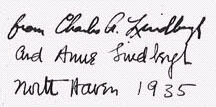 from Charles A. Lindbergh
and Anne Lindbergh
North Haven 1935